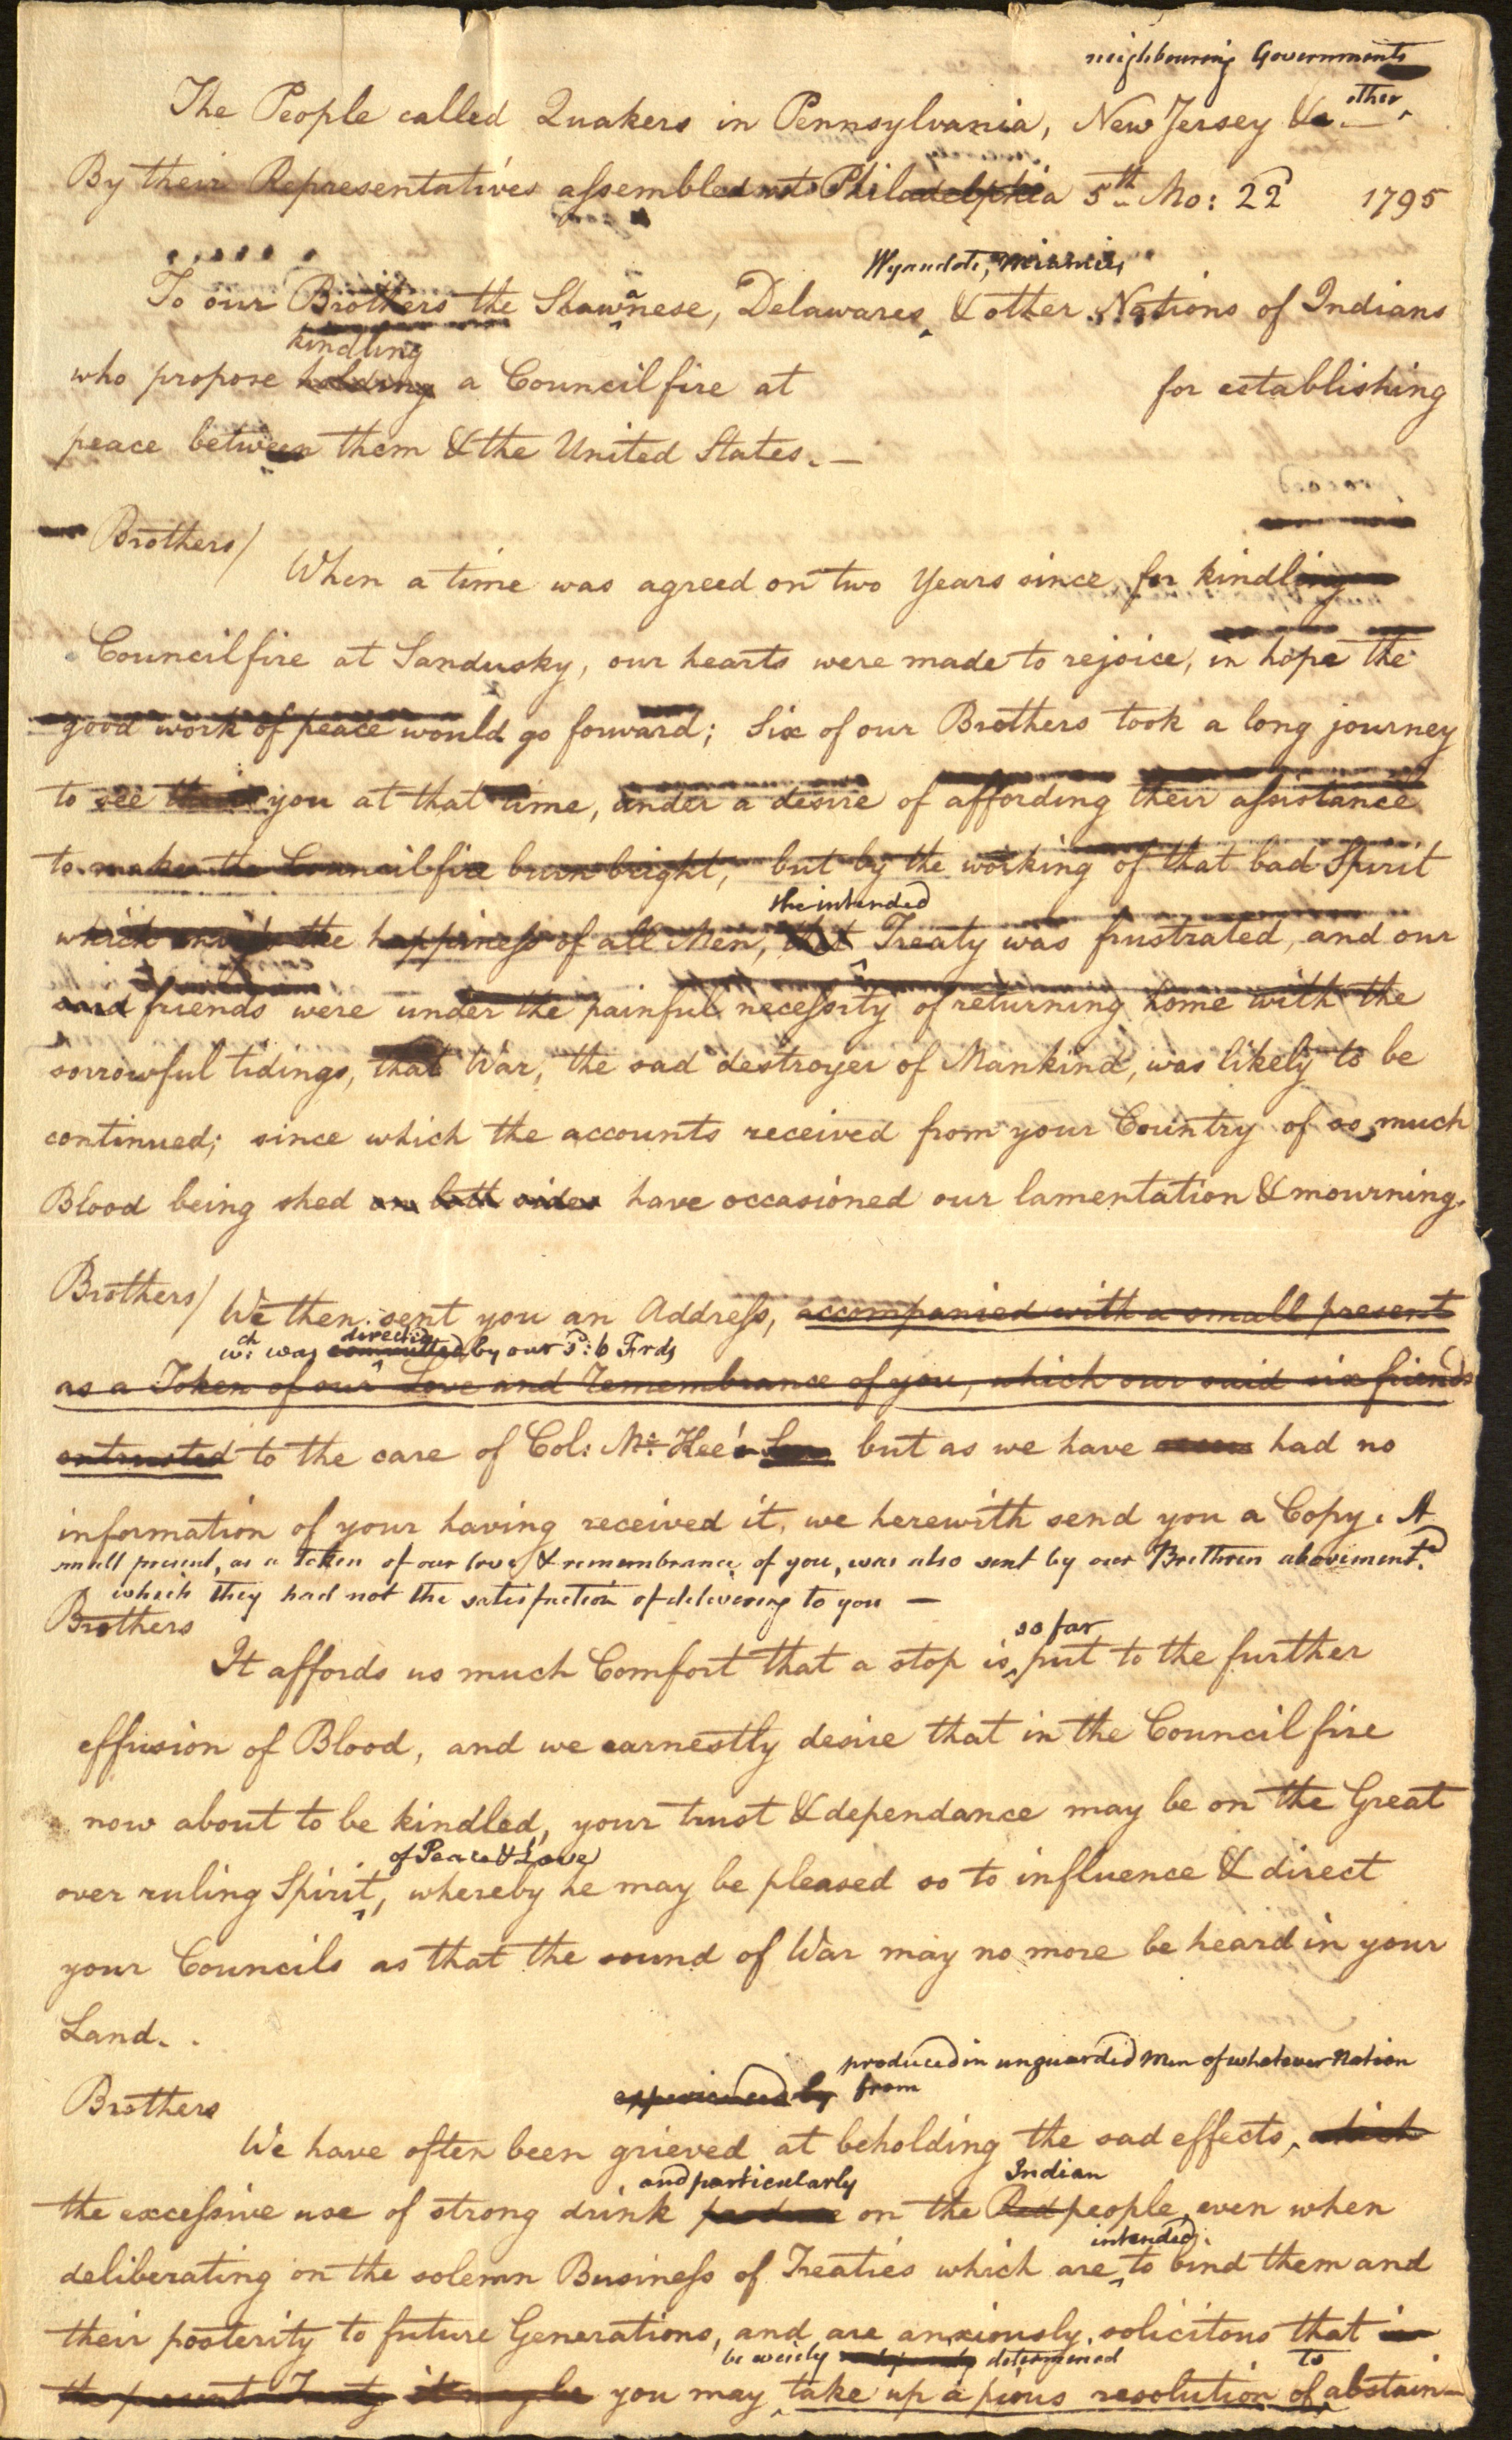 neighbouring Governments
The People called Quakers in Pennsylvania, New Jersey & other
By their Representatives assembled at Philadelphia 5th Mo: 22d 1795
Wyandots, Miamies,
To our Brothers the Shawanese, Delawares & other Nations of Indians
kindling
who propose holding a Council fire at for establishing
peace between them & the United States. —
Brothers/
When a time was agreed on two Years since for kindling a
Council fire at Sandusky, our hearts were made to rejoice, in hope the
good work of peace would go forward; Six of our Brothers took a long journey
to see you at that time, under a desire of affording their assistance
to make the Council fire burn bright, but by the working of that bad Spirit
the intended
which the happiness of all Men, that Treaty was frustrated, and our
said friends were under the painful necessity of returning home with the
sorrowful tidings, that War, the sad destroyer of Mankind, was likely to be
continued; since which the accounts received from your Country of so much
Blood being shed on both sides have occasioned our lamentation & mourning.
Brothers/
We then sent you an Address, accompanied with a small present
wch. was committed directed by our sd: 6 Frds
as a Token of our Love and Remembrance of you, which our said six friends
entrusted to the care of Col: Mc: Kee's Son but as we have had no
information of your having received it, we herewith send you a Copy. A
small present, as a Token of our love & remembrance of you, was also sent by our Brethren abovementd.
which they had not the satisfaction of delivering to you —
Brothers
so far
It affords us much Comfort that a stop is put to the further
effusion of Blood, and we earnestly desire that in the Council fire
now about to be kindled, your trust & dependance may be on the Great
of Peace & Love
over ruling Spirit, whereby he may be pleased so to influence & direct
your Councils as that the sound of War may no more be heard in your
Land. .
produced in unguarded Men of whatever Nation
experienced by from
Brothers
We have often been grieved at beholding the sad effects, which
and particularly Indian
the excessive use of strong drink produce on the Red people, even when
intended
deliberating on the solemn Business of Treaties which are to bind them and
their posterity to future Generations, and are anxiously solicitous that in
be wisely determined to
the present Treaty it may be you may take up a pious resolution of abstain—